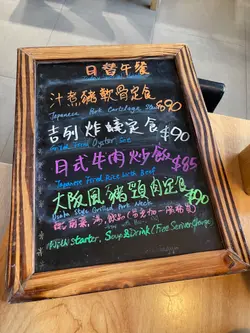 日替午餐
汁煮豬軟骨定食 $90
Japanese Pork Cartilage
吉列炸蠔定食 $90
Fried Oyster Set
日式牛肉炒飯 $85
Japanese Fried Rice with Beef
大阪風豬頸肉定食 $90
Osaka Style Grilled Pork Neck
前菜, 湯, 飲品
With starter, Soup & Drink (Free Service Charge)